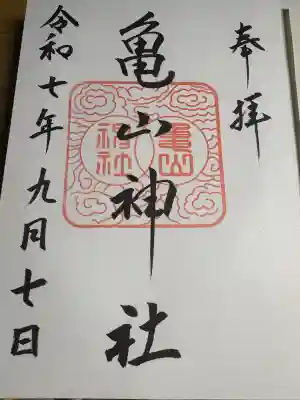 奉拝
亀山神社
亀山
神社
令和七年九月七日